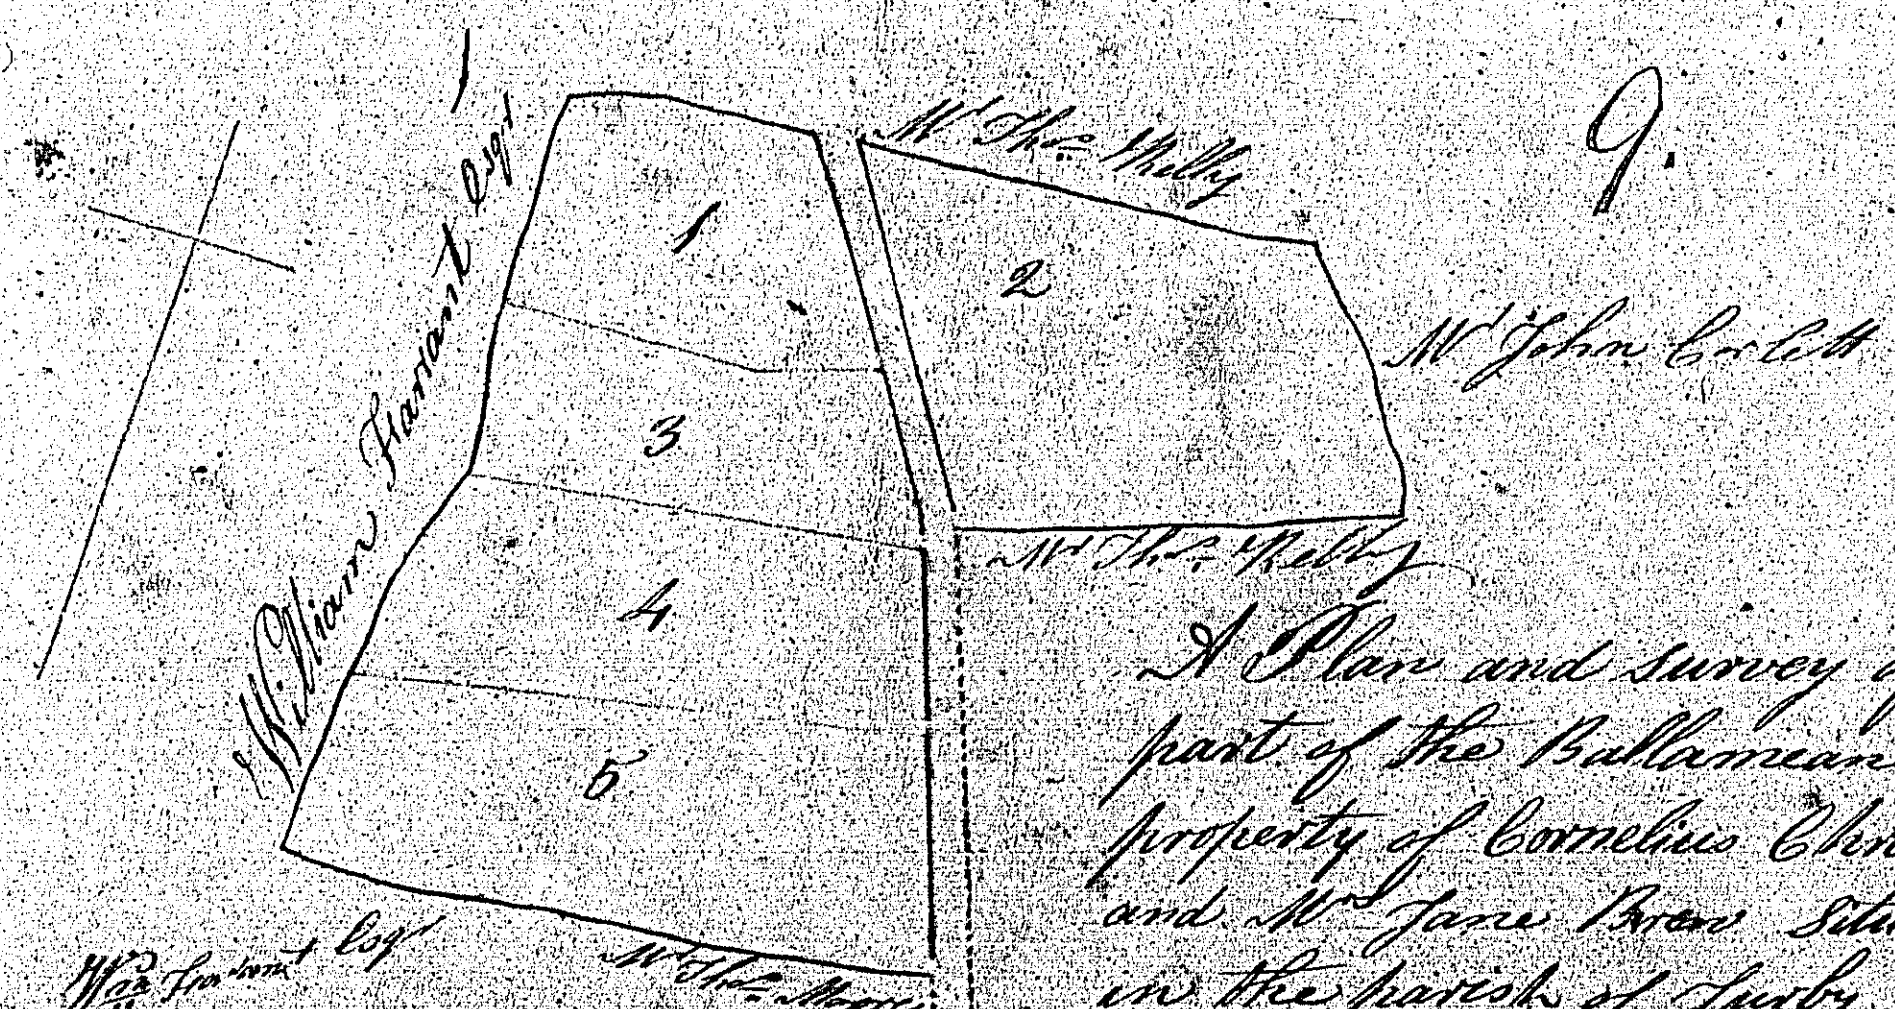 9.
Mr Thos Kelly
William Farrant Esqr
1
2
Mr John Corlett
3
Mr Thos Kelly
4
A Plan and survey of
part of the Ballamean
property of Cornelius Chri
5
and Mrs Jane Brew Situ
in the parish of Jurby
Wm Farrant Esqr
Mr Thos Moore